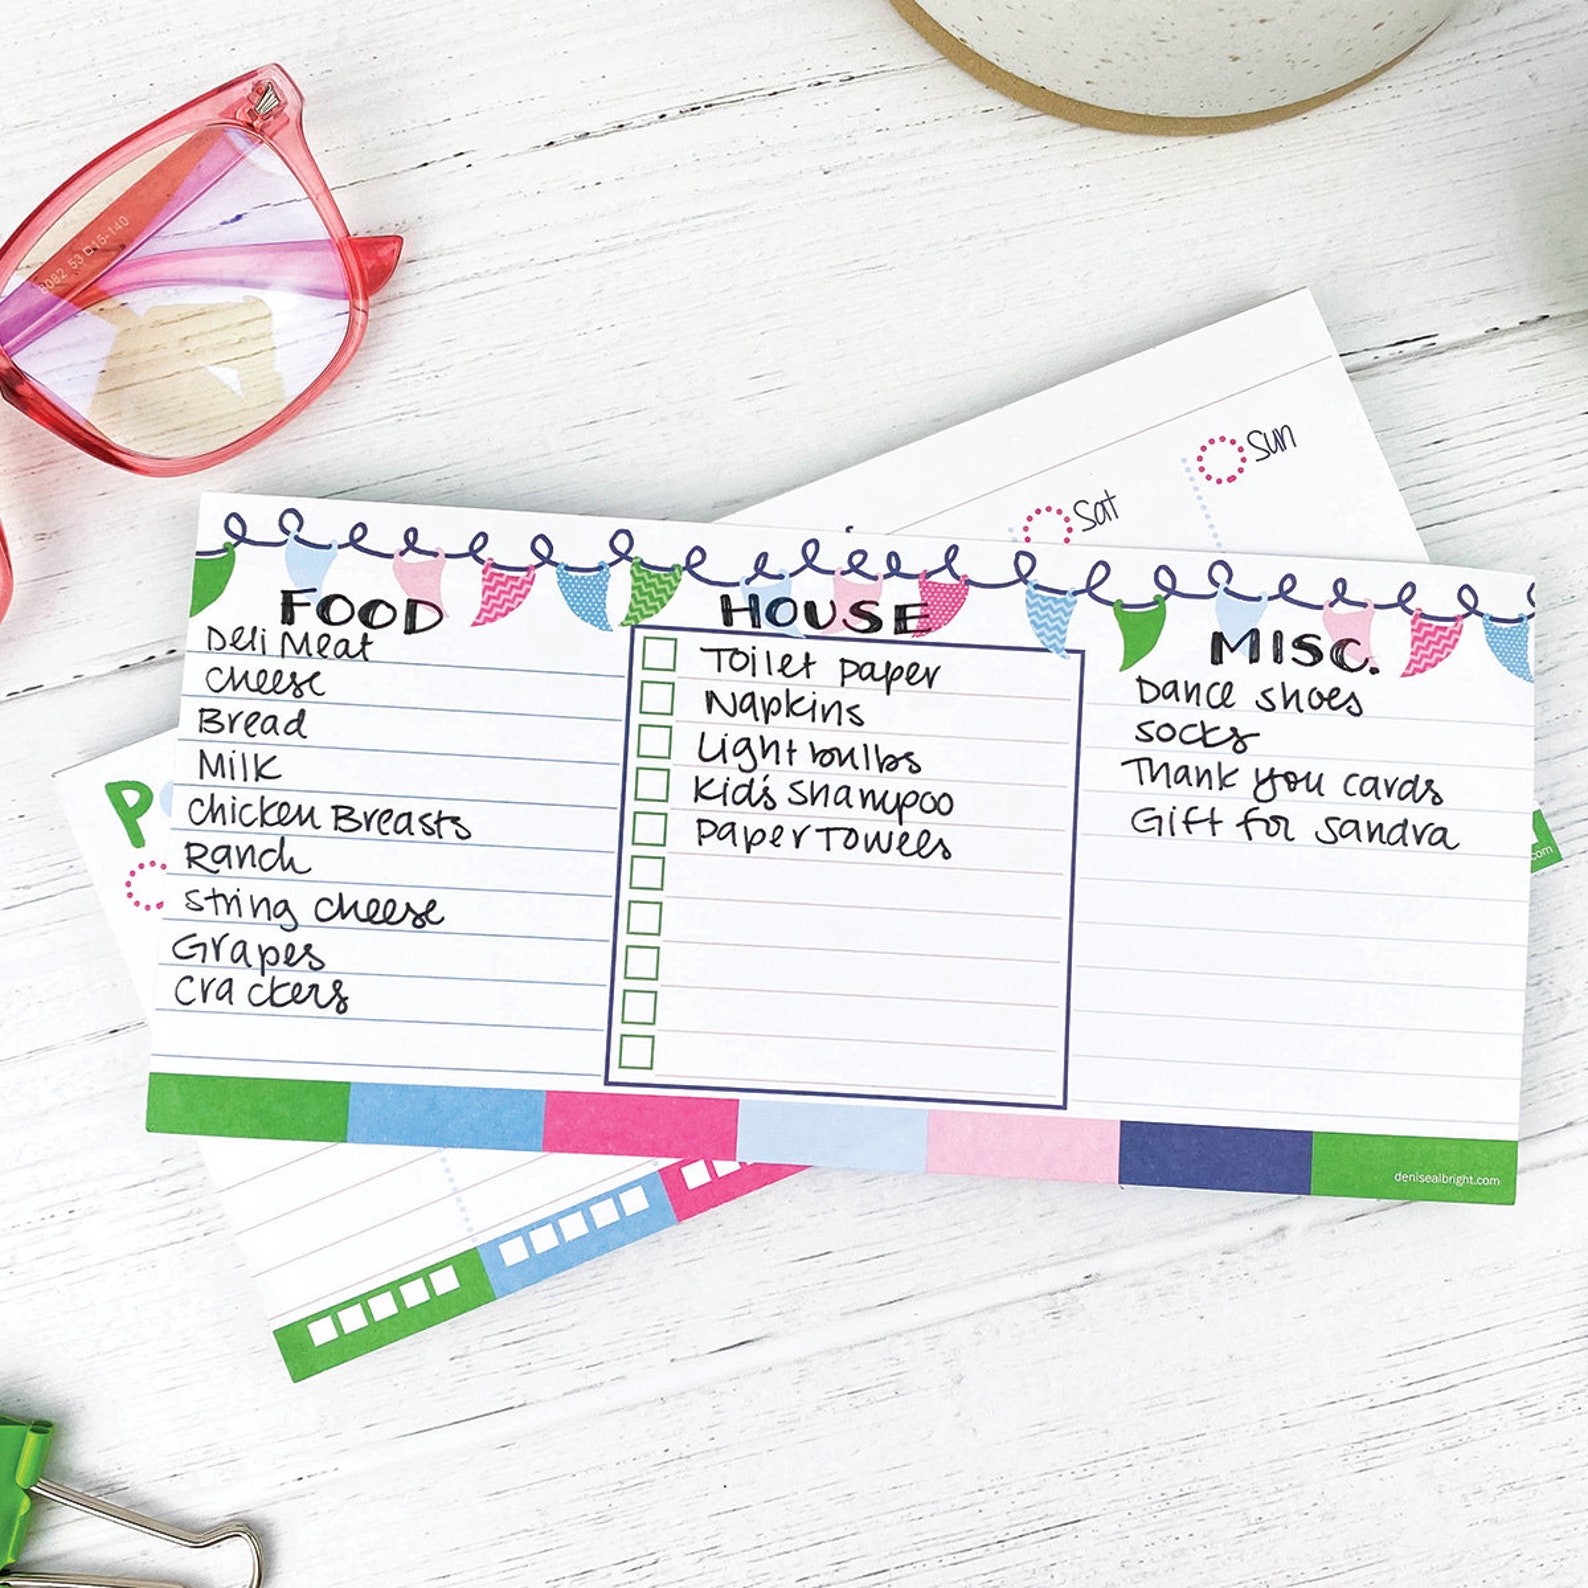 8082 53 15-140
Sun
Sat
FOOD
Deli Meat
Cheese
Bread
Milk
Chicken Breasts
Ranch
String Cheese
Grapes
Crackers
HOUSE
Toilet paper
Napkins
Lightbulbs
Kid's Shampoo
Paper Towels
MISC.
Dance shoes
Socks
Thank you cards
Gift for Sandra
P
.com
denisealbright.com